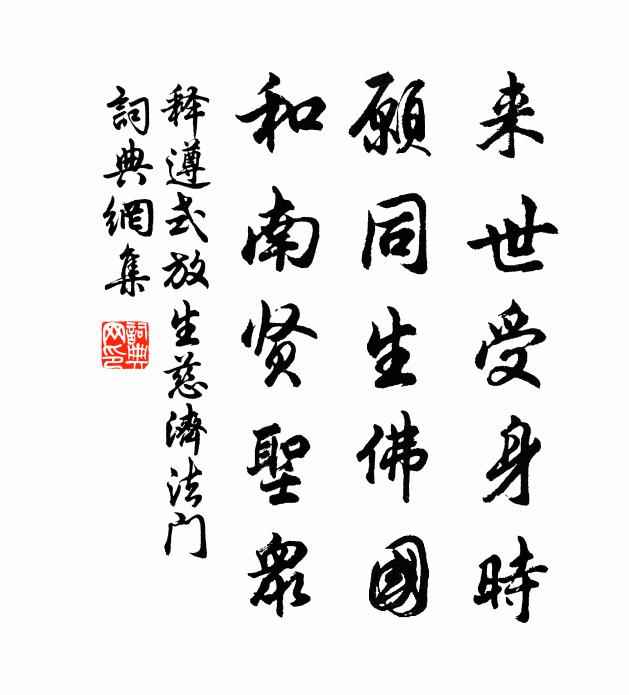 来世受身時
願同生佛國
和南贤聖眾
释遵式放生慈濟法门
詞典網集
詞典网印